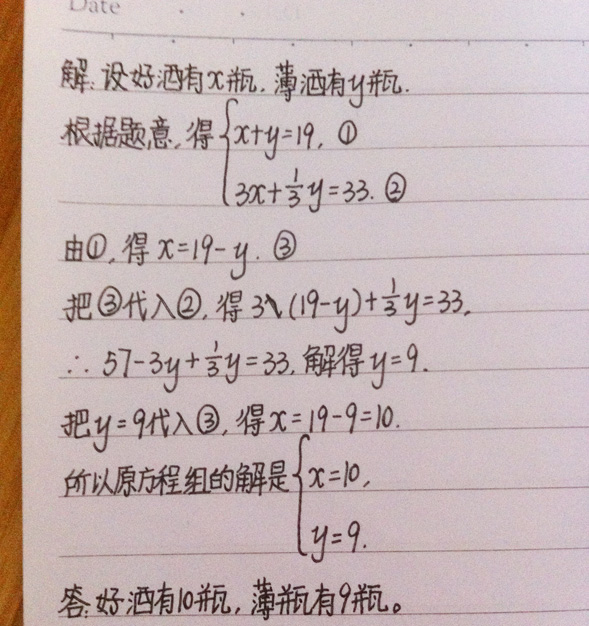 Date
解:设好酒有x瓶,薄酒有y瓶.
根据题意,得{x+y=19, ①
3x+1/3y=33. ②
由①,得x=19-y. ③
把③代入②,得3×(19-y)+1/3y=33,
∴ 57-3y+1/3y=33,解得y=9.
把y=9代入③,得x=19-9=10.
所以原方程组的解是{x=10,
y=9.
答:好酒有10瓶,薄瓶有9瓶。